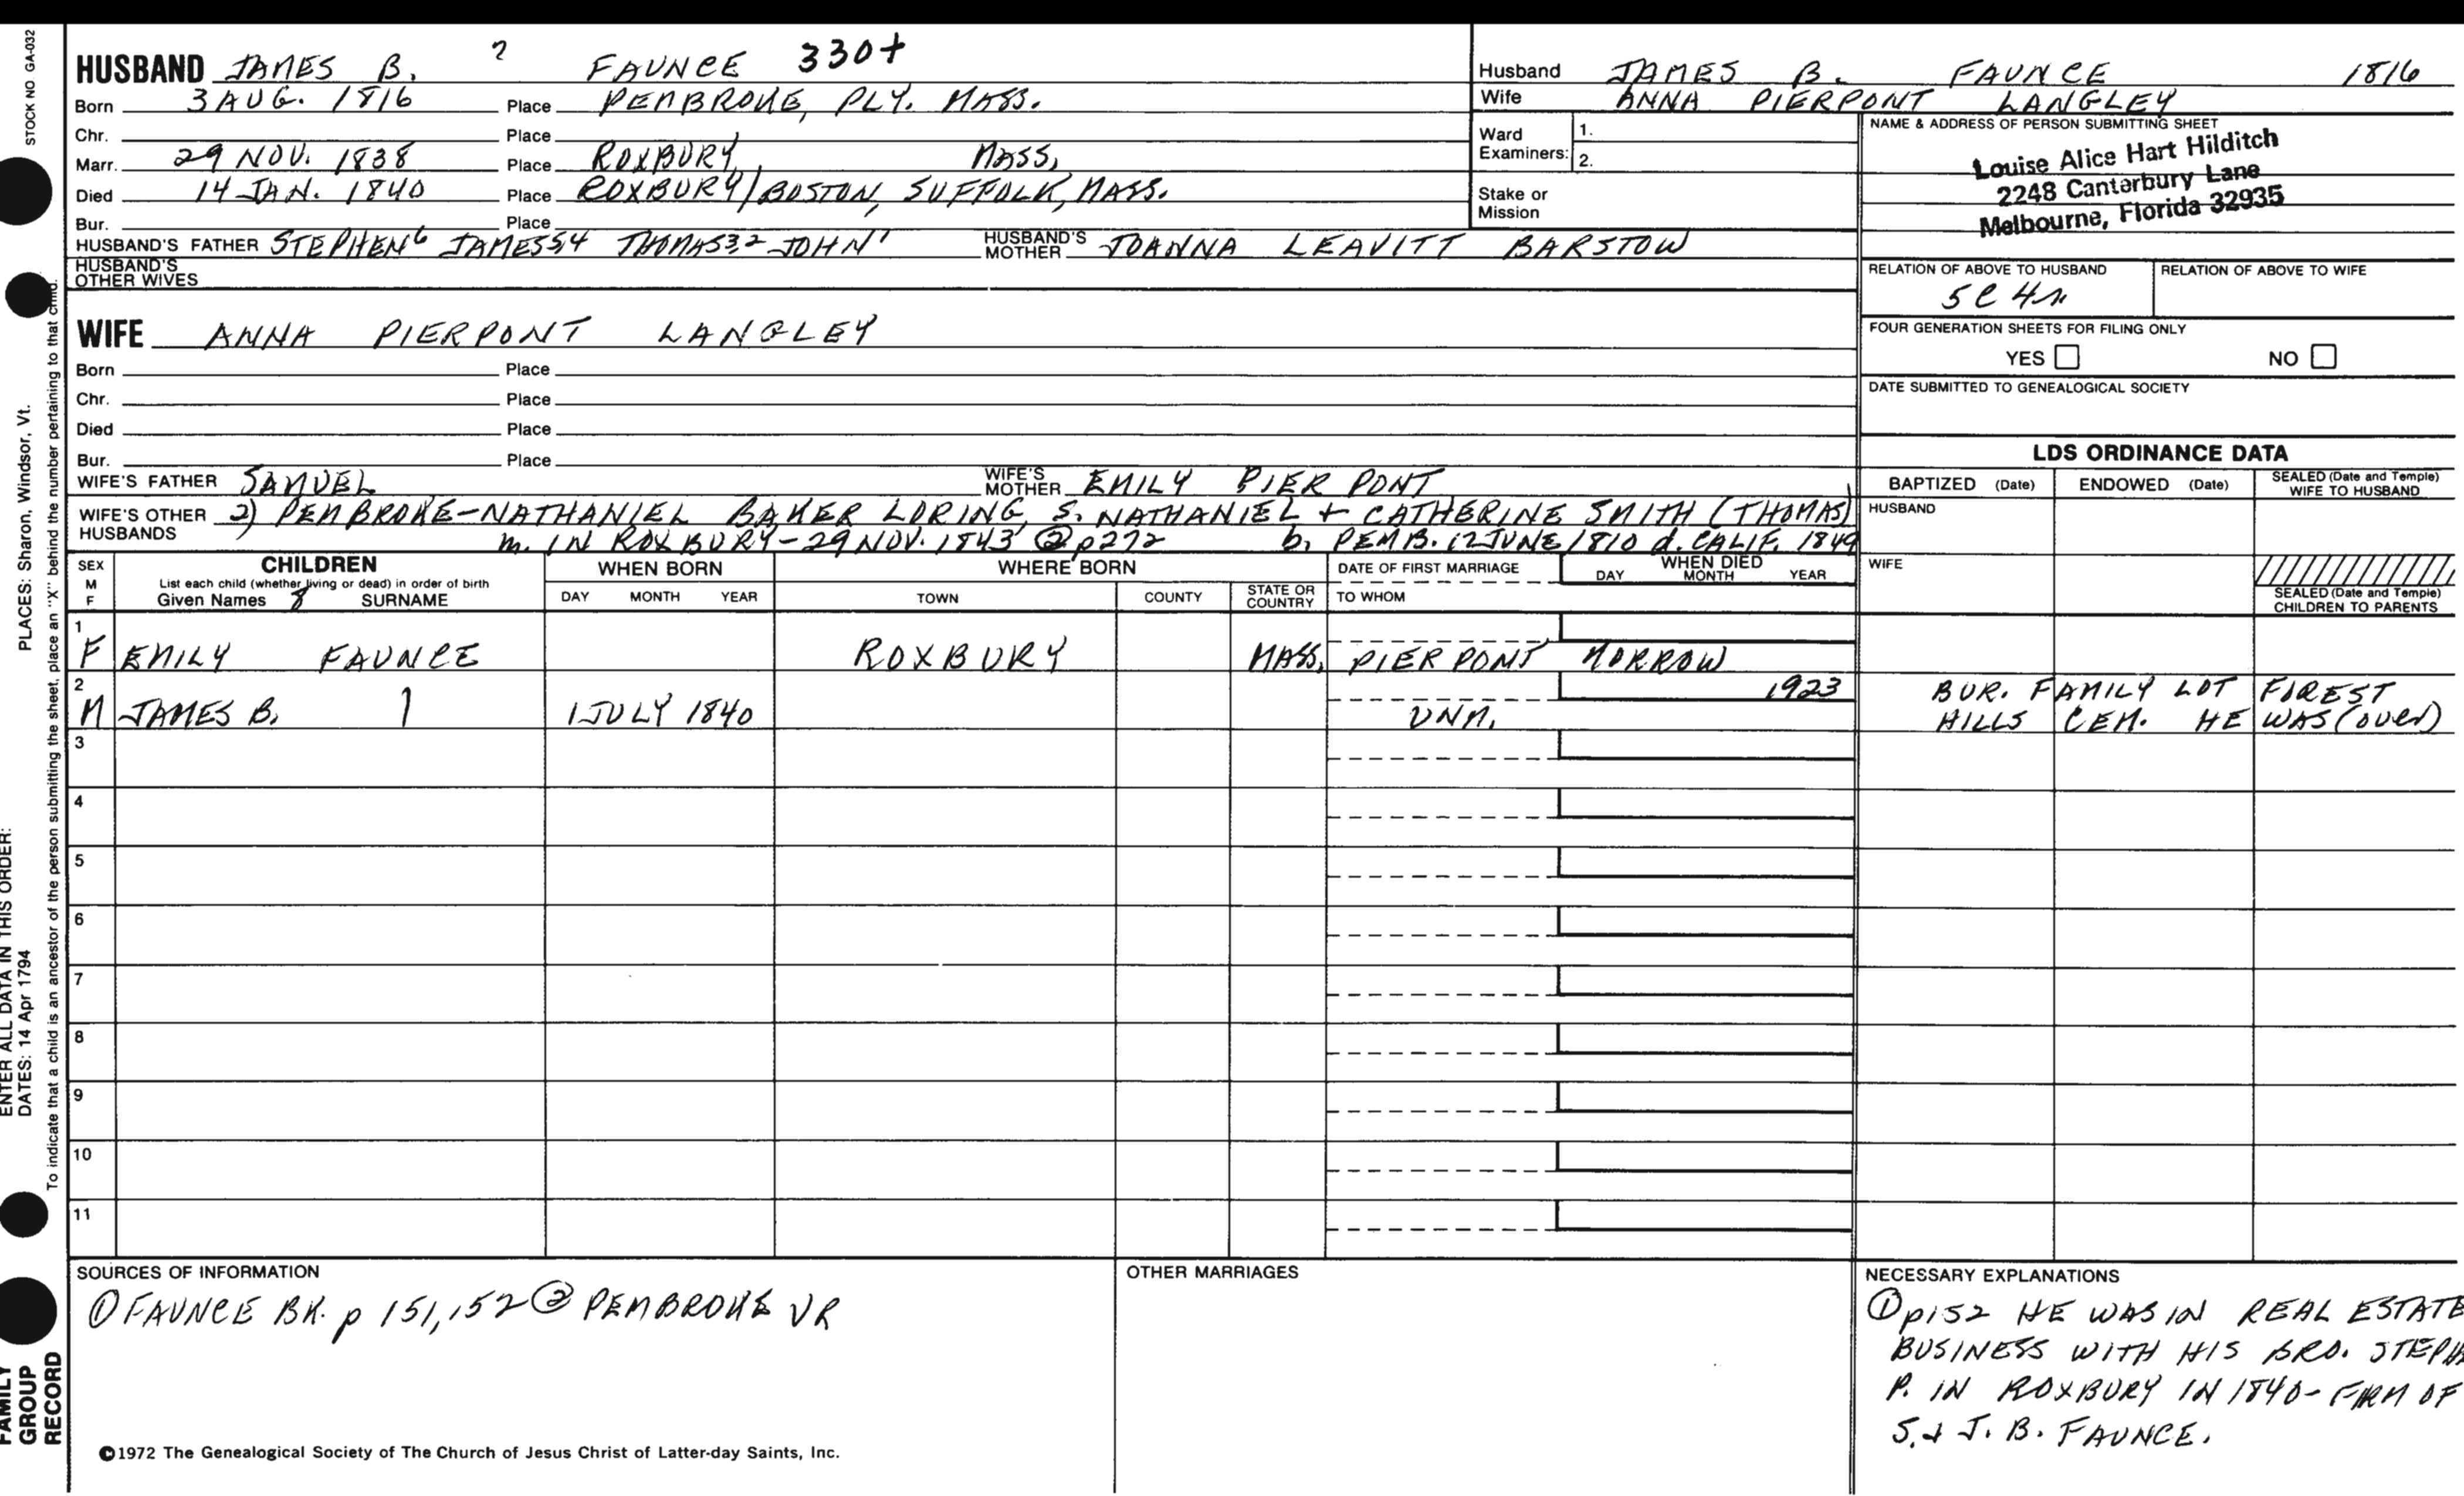 STOCK NO GA-032
PLACES: Sharon, Windsor, Vt.
ENTER ALL DATA IN THIS ORDER:
DATES: 14 Apr 1794
To indicate that a child is an ancestor of the person submitting the sheet, place an "X" behind the number pertaining to that child.
FAMILY
GROUP
RECORD
HUSBAND JAMES B. ? FAUNCE 330+
Born 3 AUG. 1816 Place PEMBROKE, PLY. MASS.
Chr. Place
Marr. 29 NOV. 1838 Place ROXBURY, MASS,
Died 14 JAN. 1840 Place ROXBURY/BOSTON, SUFFOLK, MASS.
Bur. Place
HUSBAND'S FATHER STEPHEN6 JAMES54 THOMAS32 JOHN1 HUSBAND'S MOTHER JOANNA LEAVITT BARSTOW
HUSBAND'S
OTHER WIVES
WIFE ANNA PIERPONT LANGLEY
Born Place
Chr. Place
Died Place
Bur. Place
WIFE'S FATHER SAMUEL WIFE'S MOTHER EMILY PIERPONT
WIFE'S OTHER HUSBANDS 2) PEMBROKE-NATHANIEL BAKER LORING, S. NATHANIEL + CATHERINE SMITH (THOMAS)
m. IN ROXBURY-29 NOV. 1843 ② p272 b. PEMB. 12 JUNE 1810 d. CALIF. 1849
Husband JAMES B. FAUNCE 1816
Wife ANNA PIERPONT LANGLEY
Ward
Examiners:
1.
2.
Stake or
Mission
NAME & ADDRESS OF PERSON SUBMITTING SHEET
Louise Alice Hart Hilditch
2248 Canterbury Lane
Melbourne, Florida 32935
RELATION OF ABOVE TO HUSBAND RELATION OF ABOVE TO WIFE
5C4r
FOUR GENERATION SHEETS FOR FILING ONLY
YES NO
DATE SUBMITTED TO GENEALOGICAL SOCIETY
LDS ORDINANCE DATA
BAPTIZED (Date) ENDOWED (Date) SEALED (Date and Temple) WIFE TO HUSBAND
HUSBAND
WIFE
SEALED (Date and Temple)
CHILDREN TO PARENTS
SEX
M
F
CHILDREN
List each child (whether living or dead) in order of birth
Given Names 8 SURNAME
WHEN BORN
DAY MONTH YEAR
WHERE BORN
TOWN COUNTY STATE OR COUNTRY
DATE OF FIRST MARRIAGE
TO WHOM
WHEN DIED
DAY MONTH YEAR
1
F EMILY FAUNCE ROXBURY MASS, PIERPONT MORROW
2 1923 BUR. FAMILY LOT FOREST
M JAMES B. 1 JULY 1840 UNM. HILLS CEM. HE WAS (over)
3
4
5
6
7
8
9
10
11
SOURCES OF INFORMATION
① FAUNCE BK. p 151,152 ② PEMBROKE VR
OTHER MARRIAGES
NECESSARY EXPLANATIONS
① p152 HE WAS IN REAL ESTATE
BUSINESS WITH HIS BRO. STEPH
P. IN ROXBURY IN 1840- FIRM OF
S. + J. B. FAUNCE.
©1972 The Genealogical Society of The Church of Jesus Christ of Latter-day Saints, Inc.